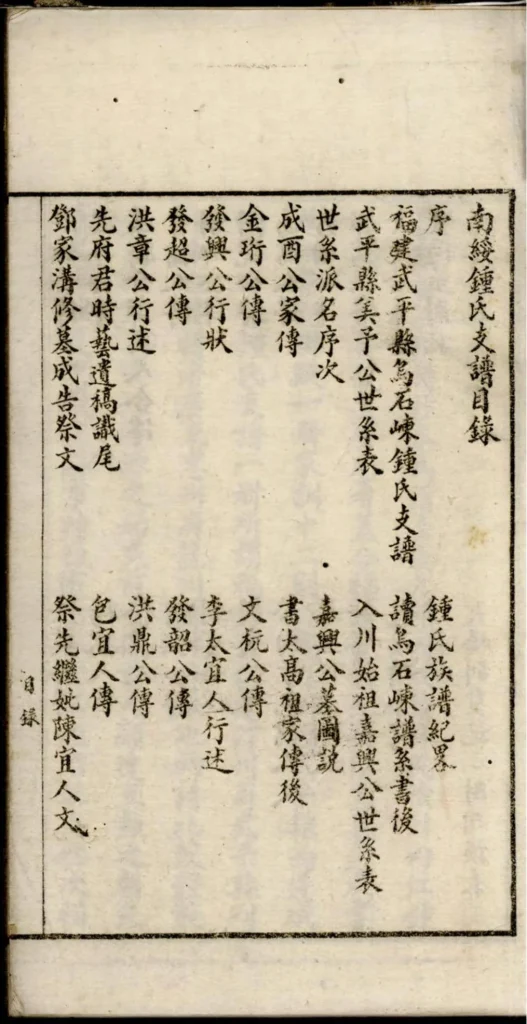 南綏鍾氏支譜目錄
序
鍾氏族譜紀畧
福建武平縣烏石崠鍾氏支譜
讀烏石崠譜系書後
武平縣美予公世系表
入川始祖嘉興公世系表
世系派名序次
嘉興公墓圖説
成酉公家傳
書太高祖家傳後
金珩公傳
文杬公傳
發興公行狀
李太宜人行述
發超公傳
發韶公傳
洪章公行述
洪鼎公傳
先府君時藝遺稿識尾
包宜人傳
鄧家溝修墓成告祭文
祭先繼妣陳宜人文
目錄